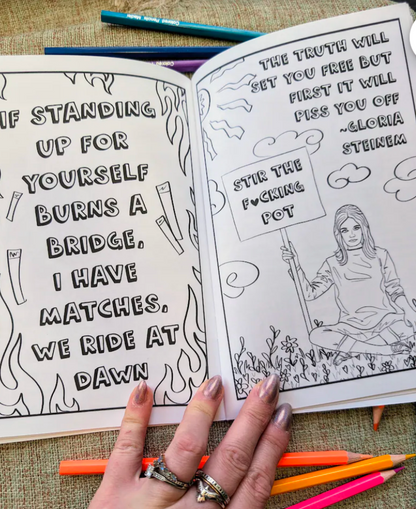 IF STANDING
UP FOR
YOURSELF
BURNS A
BRIDGE,
I HAVE
MATCHES.
WE RIDE AT
DAWN
THE TRUTH WILL
SET YOU FREE BUT
FIRST IT WILL
PISS YOU OFF
~GLORIA
STEINEM
STIR THE
FUCKING
POT